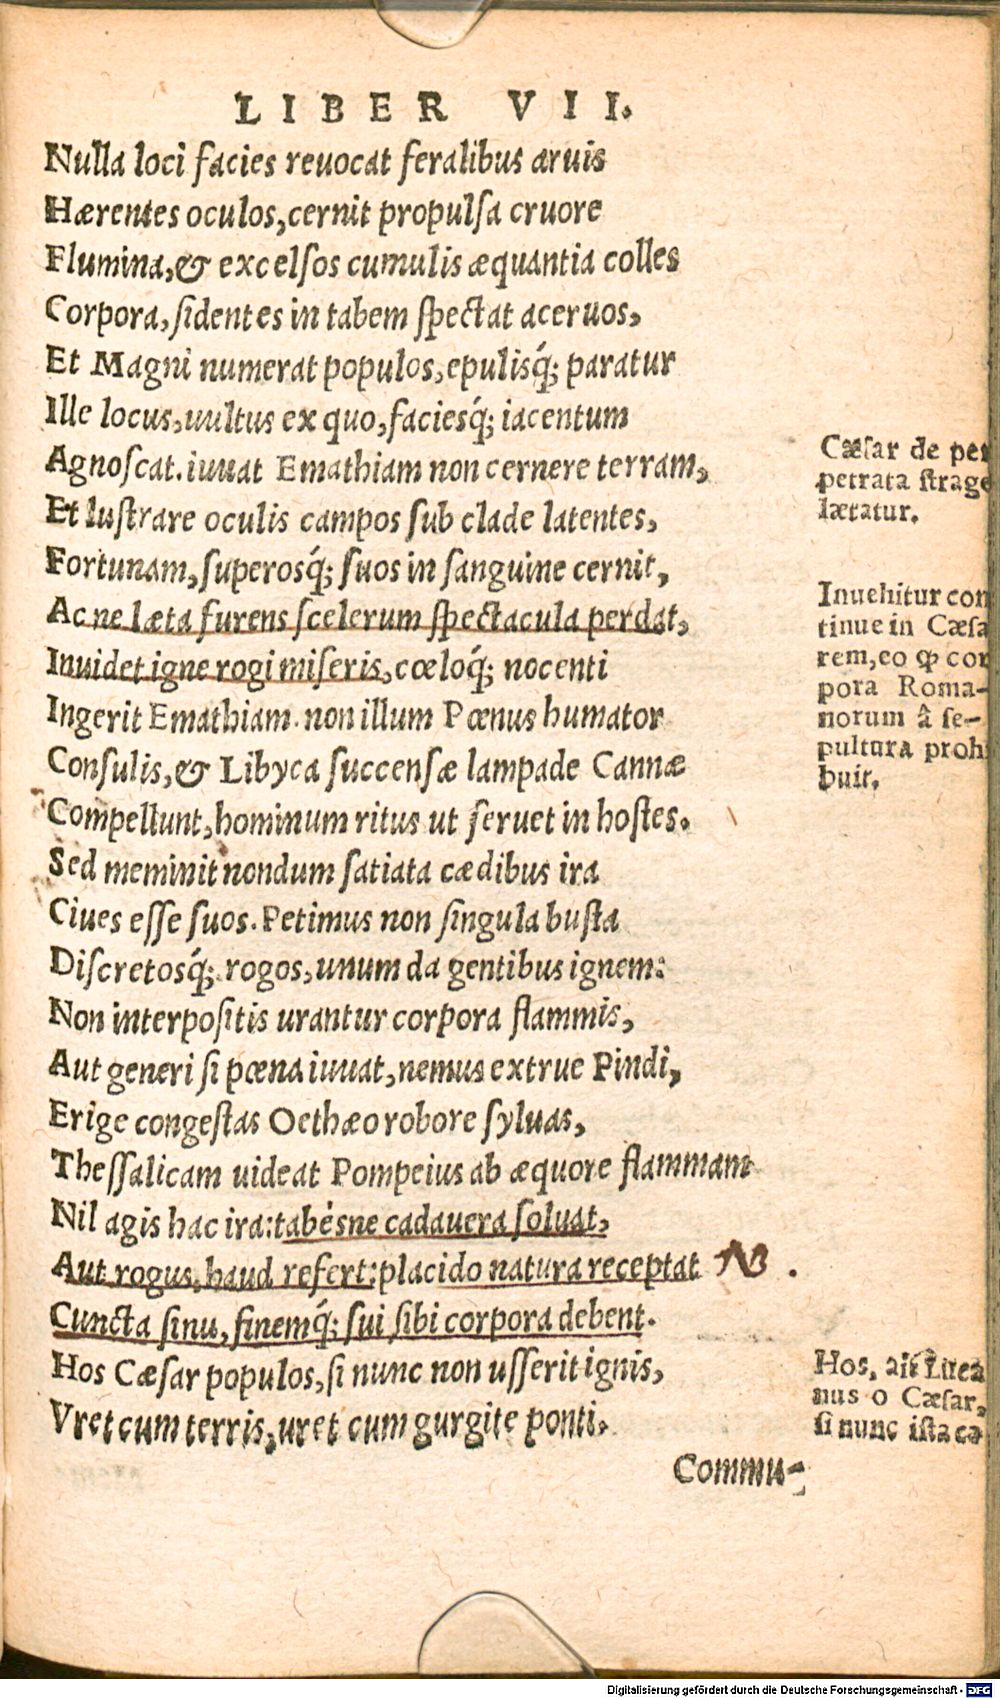 LIBER VII.
Nulla loci facies reuocat feralibus aruis
Hærentes oculos, cernit propulſa cruore
Flumina, & excelſos cumulis æquantia colles
Corpora, ſidentes in tabem ſpectat aceruos,
Et Magni numerat populos, epulisq́; paratur
Ille locus, uultus ex quo, faciesq́; iacentum
Agnoſcat. iuuat Emathiam non cernere terram,
Et luſtrare oculis campos ſub clade latentes,
Fortunam, ſuperosq́; ſuos in ſanguine cernit,
Ac ne læta furens ſcelerum ſpectacula perdat,
Inuidet igne rogi miſeris, cœloq́; nocenti
Ingerit Emathiam. non illum Pœnus humator
Conſulis, & Libyca ſuccenſæ lampade Cannæ
Compellunt, hominum ritus ut ſeruet in hoſtes.
Sed meminit nondum ſatiata cædibus ira
Ciues eſſe ſuos. Petimus non ſingula buſta
Diſcretosq́; rogos, unum da gentibus ignem:
Non interpoſitis urantur corpora flammis,
Aut generi ſi pœna iuuat, nemus extrue Pindi,
Erige congeſtas Oethæo robore ſyluas,
Theſſalicam uideat Pompeius ab æquore flammam
Nil agis hac ira: tabésne cadauera ſoluat,
Aut rogus, haud refert: placido natura receptat
Cuncta ſinu, finemq́; ſui ſibi corpora debent.
Hos Cæſar populos, ſi nunc non uſſerit ignis,
Vret cum terris, uret cum gurgite ponti.
Commu-
Cæſar de per
petrata ſtrage
lætatur.
Inuehitur con
tinue in Cæſa
rem, eo ꝙ cor
pora Roma-
norum â ſe-
pultura prohi
buit.
NB.
Hos, ait Luca
nus o Cæſar,
ſi nunc iſta cæ
Digitalisierung gefördert durch die Deutsche Forschungsgemeinschaft - DFG